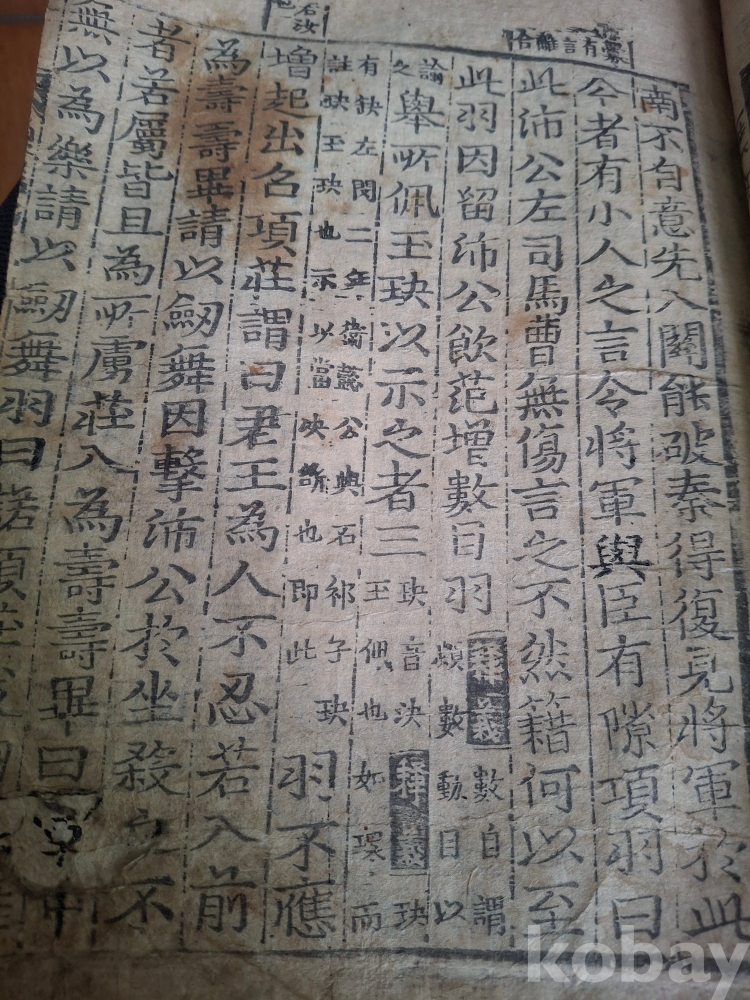 有言離合
南不自意先入關能破秦得復見將軍於此
今者有小人之言令將軍與臣有隙項羽曰
此沛公左司馬曹無傷言之不然籍何以至
此羽因留沛公飲范增數目羽
釋義數自謂
頻數動目以
諭
之
舉所佩玉玦以示之者三
玦音決釋義玦
玉佩也如環而
有缺左閔二年衛懿公與石祁子玦
註玦玉玦也示以當決斷也即此
羽不應
增起出召項莊謂曰君王為人不忍若入前
為壽壽畢請以劒舞因擊沛公於坐殺之不
者若屬皆且為所虜莊入為壽壽畢曰中
無以為樂請以劒舞羽曰諾項莊
kobay